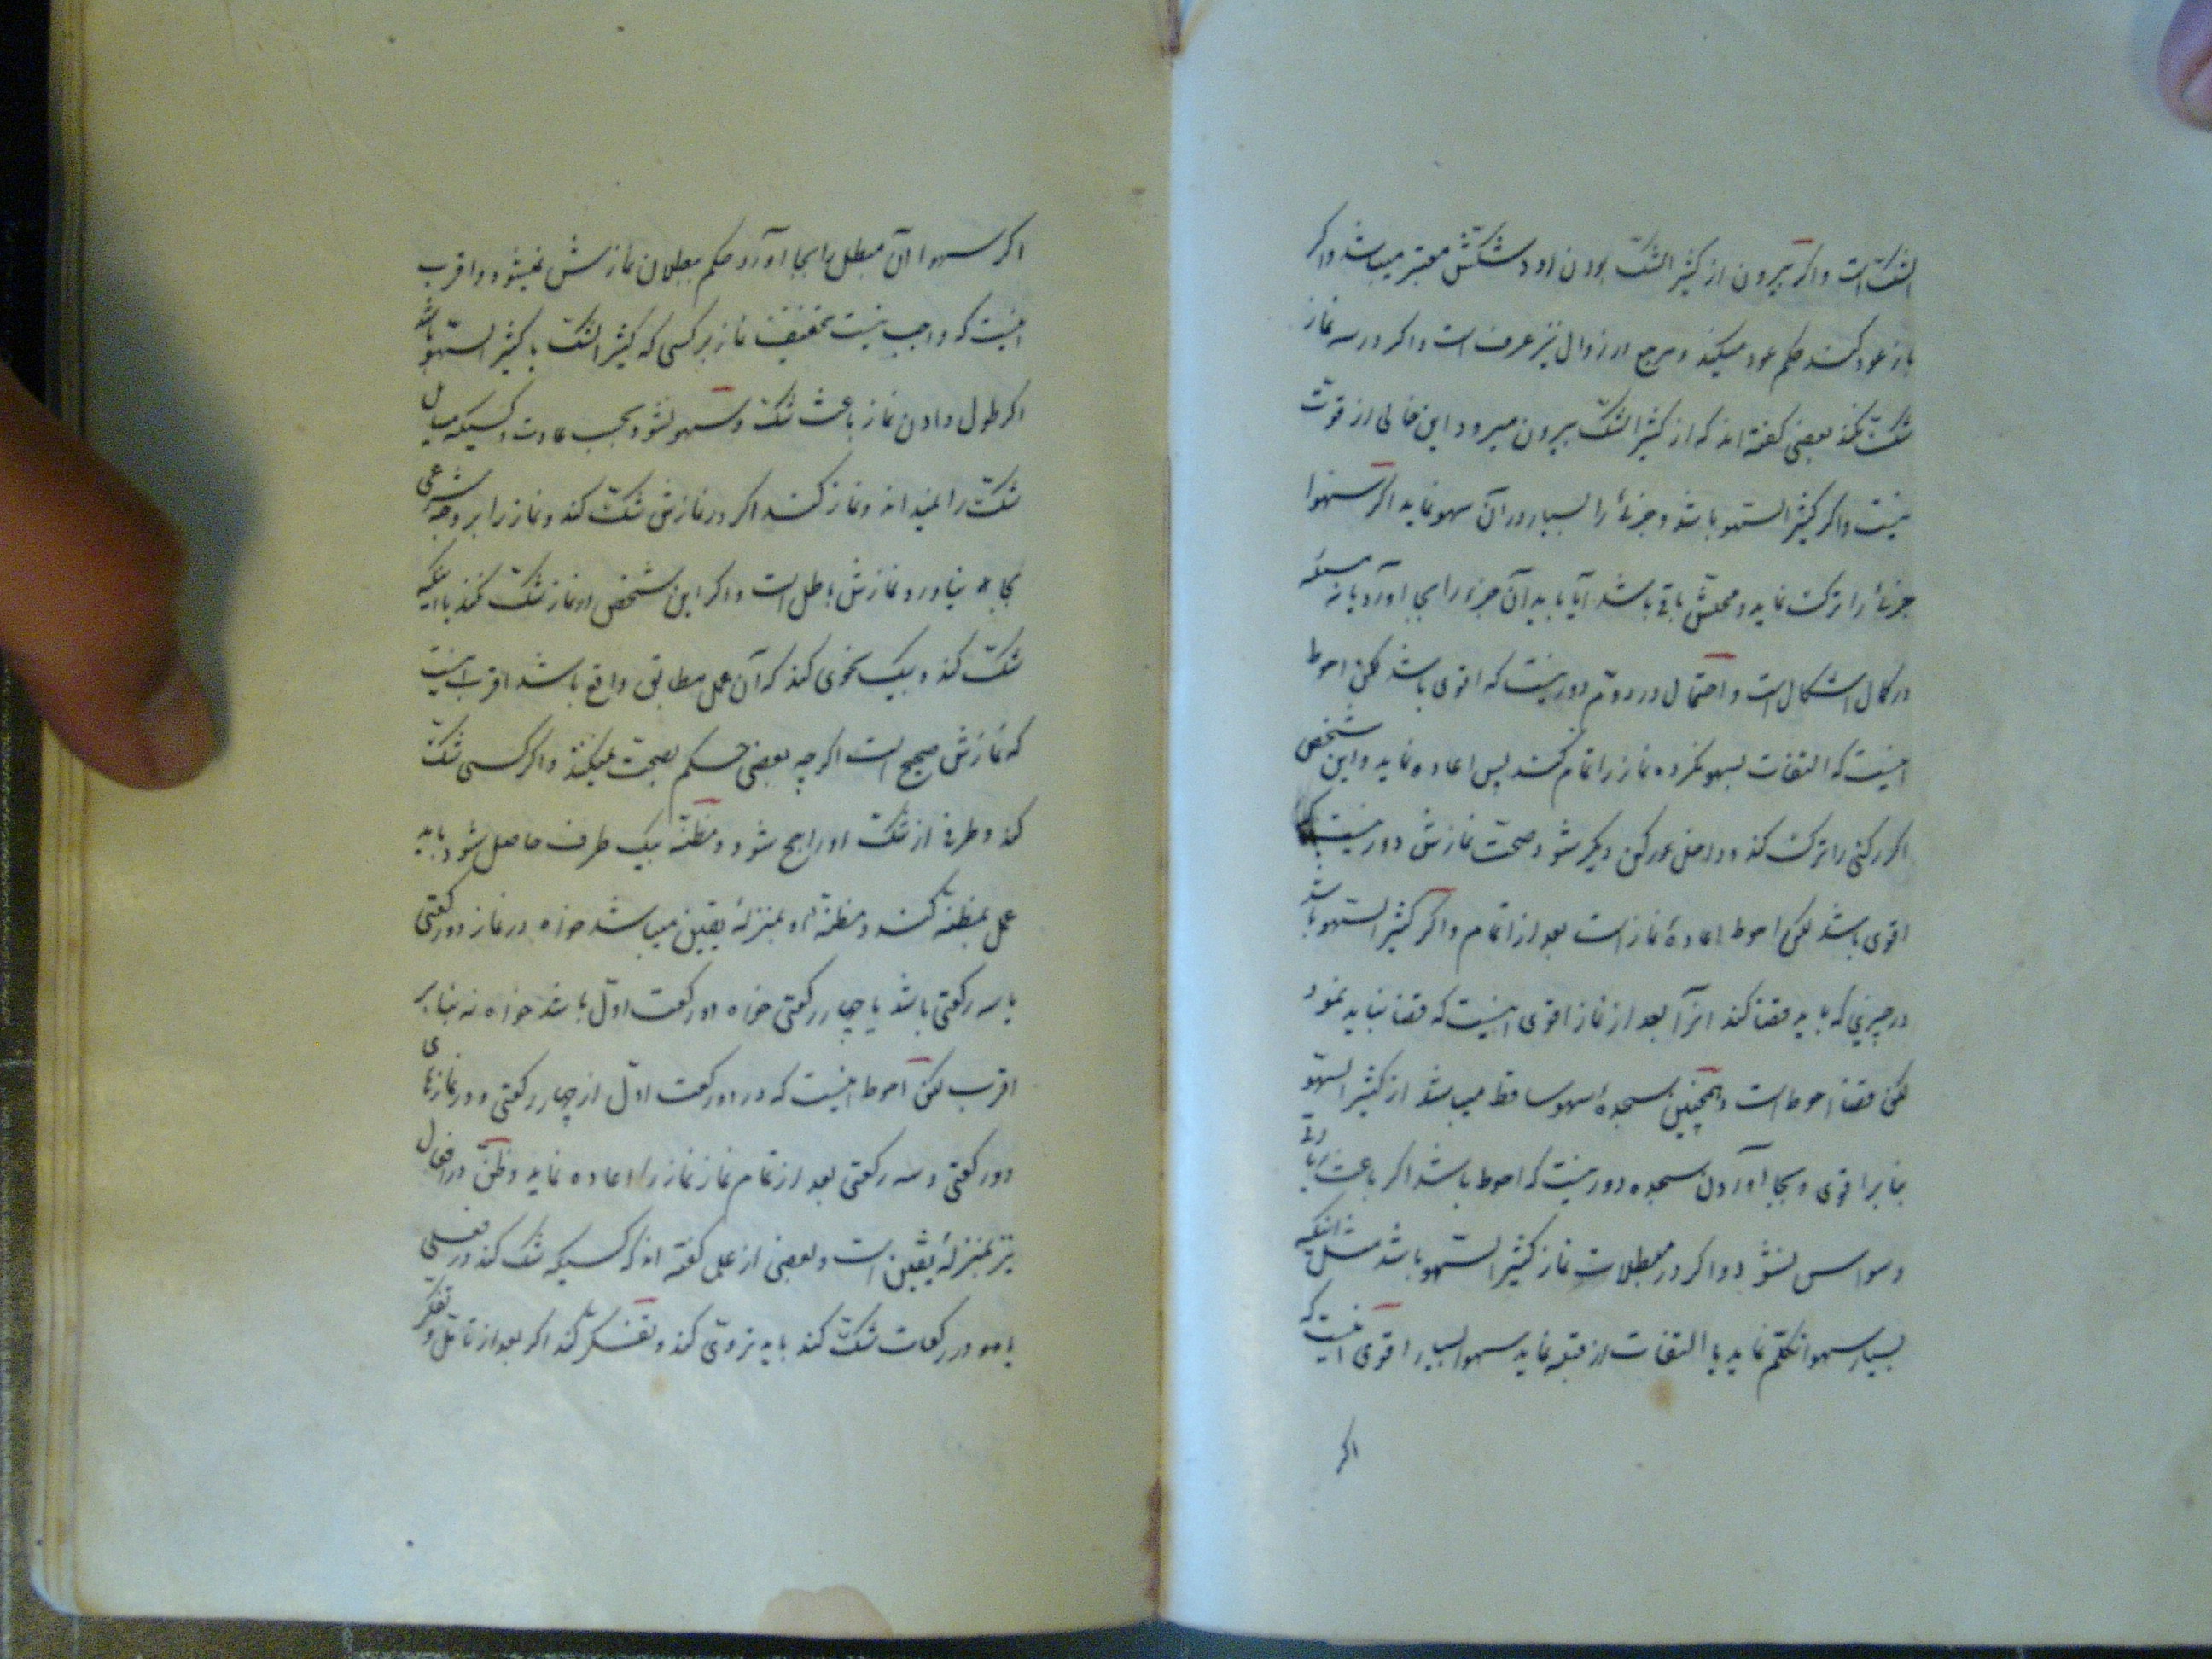 الشک است و اگر بیرون از کثیر الشک بودن رود شکش معتبر میباشد و اگر
باز عود کند حکم عود میکند و مرجع در زوال نیز عرف است و اگر در سه نماز
شک نکند بعضی گفته‌اند که از کثیر الشک بیرون میرود این خالی از قوت
نیست و اگر کثیر السهو باشد و جزئی را بسیار در آن سهو نماید اگر سهوا
جزئی را ترک نماید و محلش باقی باشد آیا باید آن جزء را بجا آورد یا نه مسئله
در کمال اشکال است و احتمال دوم دور نیست که اقوی باشد لکن احوط
اینست که التفات بسهو نکرده نماز را تمام کند پس اعاده نماید و این شخص
اگر رکنی را ترک کند و داخل در رکن دیگر شود صحت نمازش دور نیست که
اقوی باشد لکن احوط اعادهٔ نماز است بعد از اتمام و اگر کثیر السهو باشد
در چیزی که باید قضا کند انرا بعد از نماز اقوی اینست که قضا نباید نمود
لکن قضا احوط است و همچنین سجدهٔ سهو ساقط میباشد از کثیر السهو
بنابر اقوی و بجا آوردن سجده دور نیست که احوط باشد اگر باعث زیادتی
وسواس نشود و اگر در مبطلات نماز کثیر السهو باشد مثل اینکه
بسیار سهوا تکلم نماید یا التفات از قبله نماید سهوا بسیار اقوی اینست که
اگر
اگر سهوا آن مبطل را بجا آورد حکم ببطلان نمازش نمیشود و اقرب
اینست که واجب نیست تخفیف نماز بر کسی که کثیر الشک یا کثیر السهو باشد
اگر طول دادن نماز باعث شک و سهو نشود بحسب عادت و کسیکه مسایل
شک را نمیداند و نماز کند اگر در نمازش شک کند و نماز را بر وجه شرعی
بجا نیاورد نمازش باطل است و اگر این شخص در نماز شک نکند یا اینکه
شک کند و بیک نحوی کند که آن عمل مطابق واقع باشد اقرب اینست
که نمازش صحیح است اگر چه بعضی حکم بصحت نمیکنند و اگر کسی شک
کند و طرفی از شک او راجح شود و مظنه بیک طرف حاصل شود باید
عمل بمظنه کند و مظنه او بمنزلهٔ یقین میباشد خواه در نماز دو رکعتی
یا سه رکعتی باشد یا چهار رکعتی خواه دو رکعت اول باشد خواه نه بنا بر
اقرب لکن احوط اینست که در دو رکعت اول از چهار رکعتی و در نمازهای
دو رکعتی و سه رکعتی بعد از تمام نماز نماز را اعاده نماید و ظن در افعال
نیز بمنزلهٔ یقین است و بعضی از علما گفته‌اند که کسیکه شک کند در فعلی
یا در رکعات شک کند باید تروی کند و تفکر کند اگر بعد از تامل و تفکر